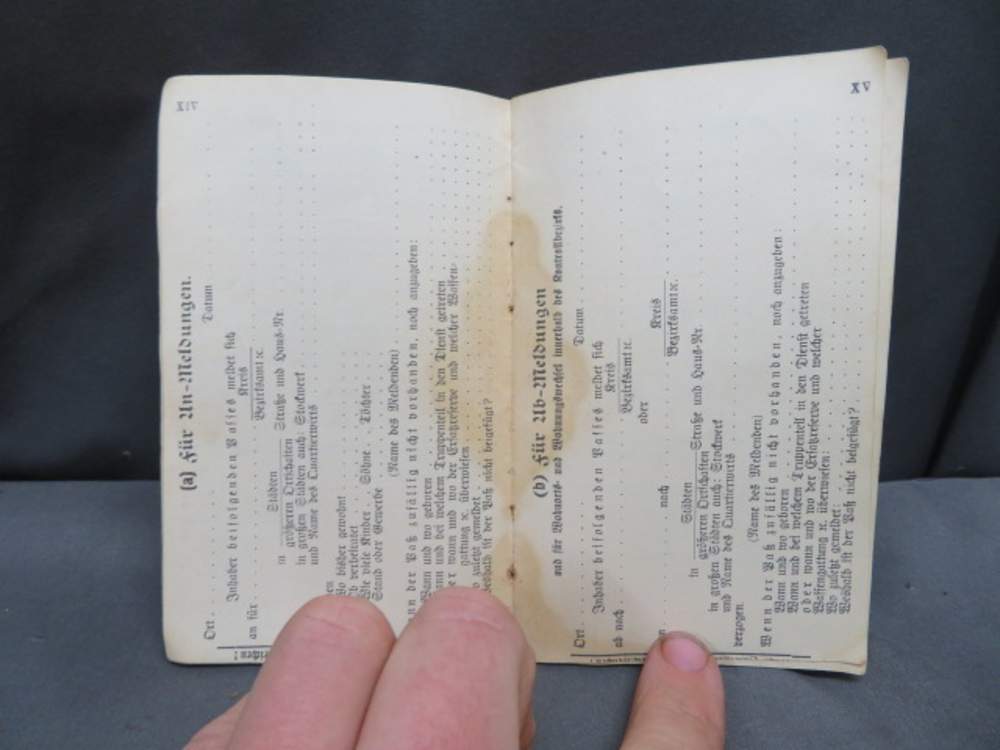 XIV
(a) Für An-Meldungen.
Ort . . . Datum
Inhaber beifolgenden Passes meldet sich
an für Kreis
Bezirksamt ꝛc.
Städten
in größeren Ortschaften Straße und Haus-Nr.
in großen Städten auch: Stockwerk
und Name des Quartierwirts
Wo bisher gewohnt
Ob verheiratet
Wie viele Kinder . . Söhne . . Töchter
Stand oder Gewerbe
(Name des Meldenden)
Wenn der Paß zufällig nicht vorhanden, noch anzugeben:
Wann und wo geboren
Wann und bei welchem Truppenteil in den Dienst getreten
oder wann und wo der Ersatzreserve und welcher Waffen-
gattung ꝛc. überwiesen
Wo zuletzt gemeldet
Weshalb ist der Paß nicht beigefügt?
XV
(b) Für Ab-Meldungen
und für Wohnorts- und Wohnungswechsel innerhalb des Kontrollbezirks.
Ort . . . Datum
Inhaber beifolgenden Passes meldet sich
ab nach Kreis
Bezirksamt ꝛc.
oder
nach Kreis
Bezirksamt ꝛc.
Städten
in größeren Ortschaften Straße und Haus-Nr.
in großen Städten auch: Stockwerk
und Name des Quartierwirts
verzogen.
(Name des Meldenden)
Wenn der Paß zufällig nicht vorhanden, noch anzugeben:
Wann und wo geboren
Wann und bei welchem Truppenteil in den Dienst getreten
oder wann und wo der Ersatzreserve und welcher
Waffengattung ꝛc. überwiesen:
Wo zuletzt gemeldet:
Weshalb ist der Paß nicht beigefügt?